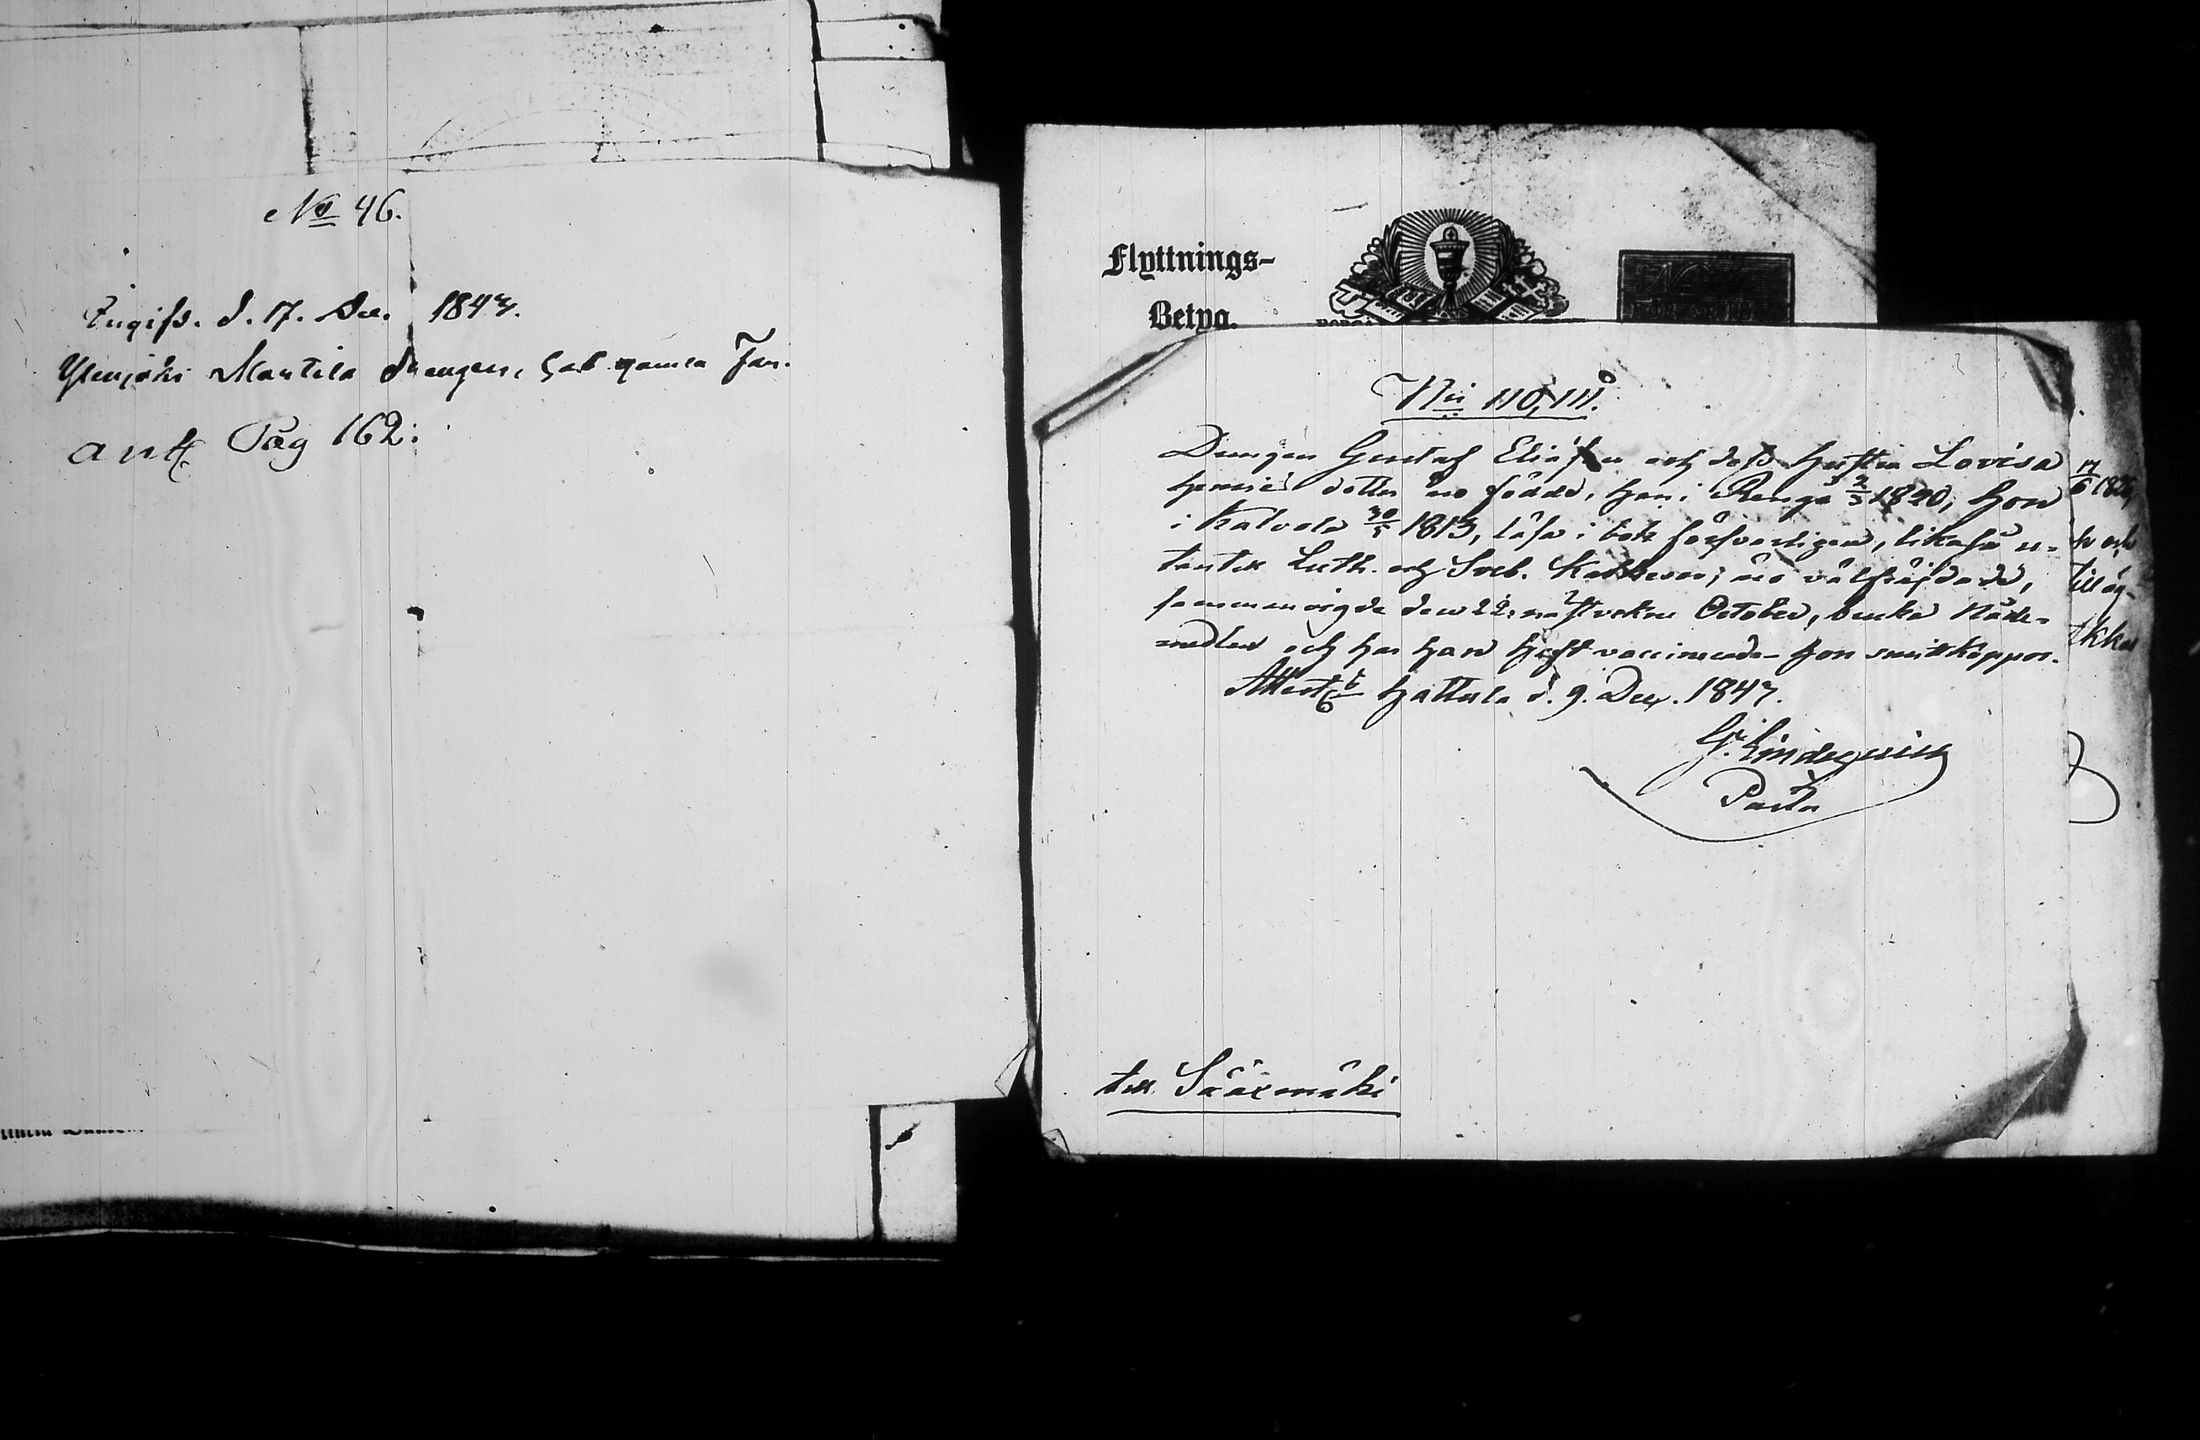 No 46.
Ingifs. d. 17. Dec. 1847.
Ylenjoki Martila drengen, Gab. gamla
antt. Pag 162.
Flyttnings-
Betyg.
Nris 110, 111.
Drengen Gustaf Eliasson och dess hustru Lovisa
dotter äro födde, han i Rengo 2/3 1820, hon
i Kalvola 30/5 1813, läsa i bok försvarligen, likaså u-
tantill Luth. och Sveb. Katkeser; äro välfräjdade,
sammanvigde den 22 näst vekne October, bruka Nåde-
medlen och har han haft vaccinen och hon smittkoppor.
Attest. Hattula d. 9. Dec. 1847.
G. Lindeqvist
Pastor
till Sääxmäki